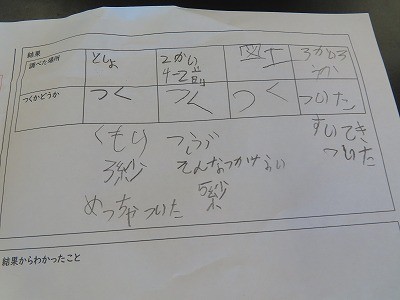 結果
調べた場所 としょ 2かい 図工 ろかどろ
4-2前 うか
つくかどうか つく つく つく ついた
くもり つぶ すいてき
3紗 そんなつかけない ついた
めっちゃついた 5紗
結果からわかったこと